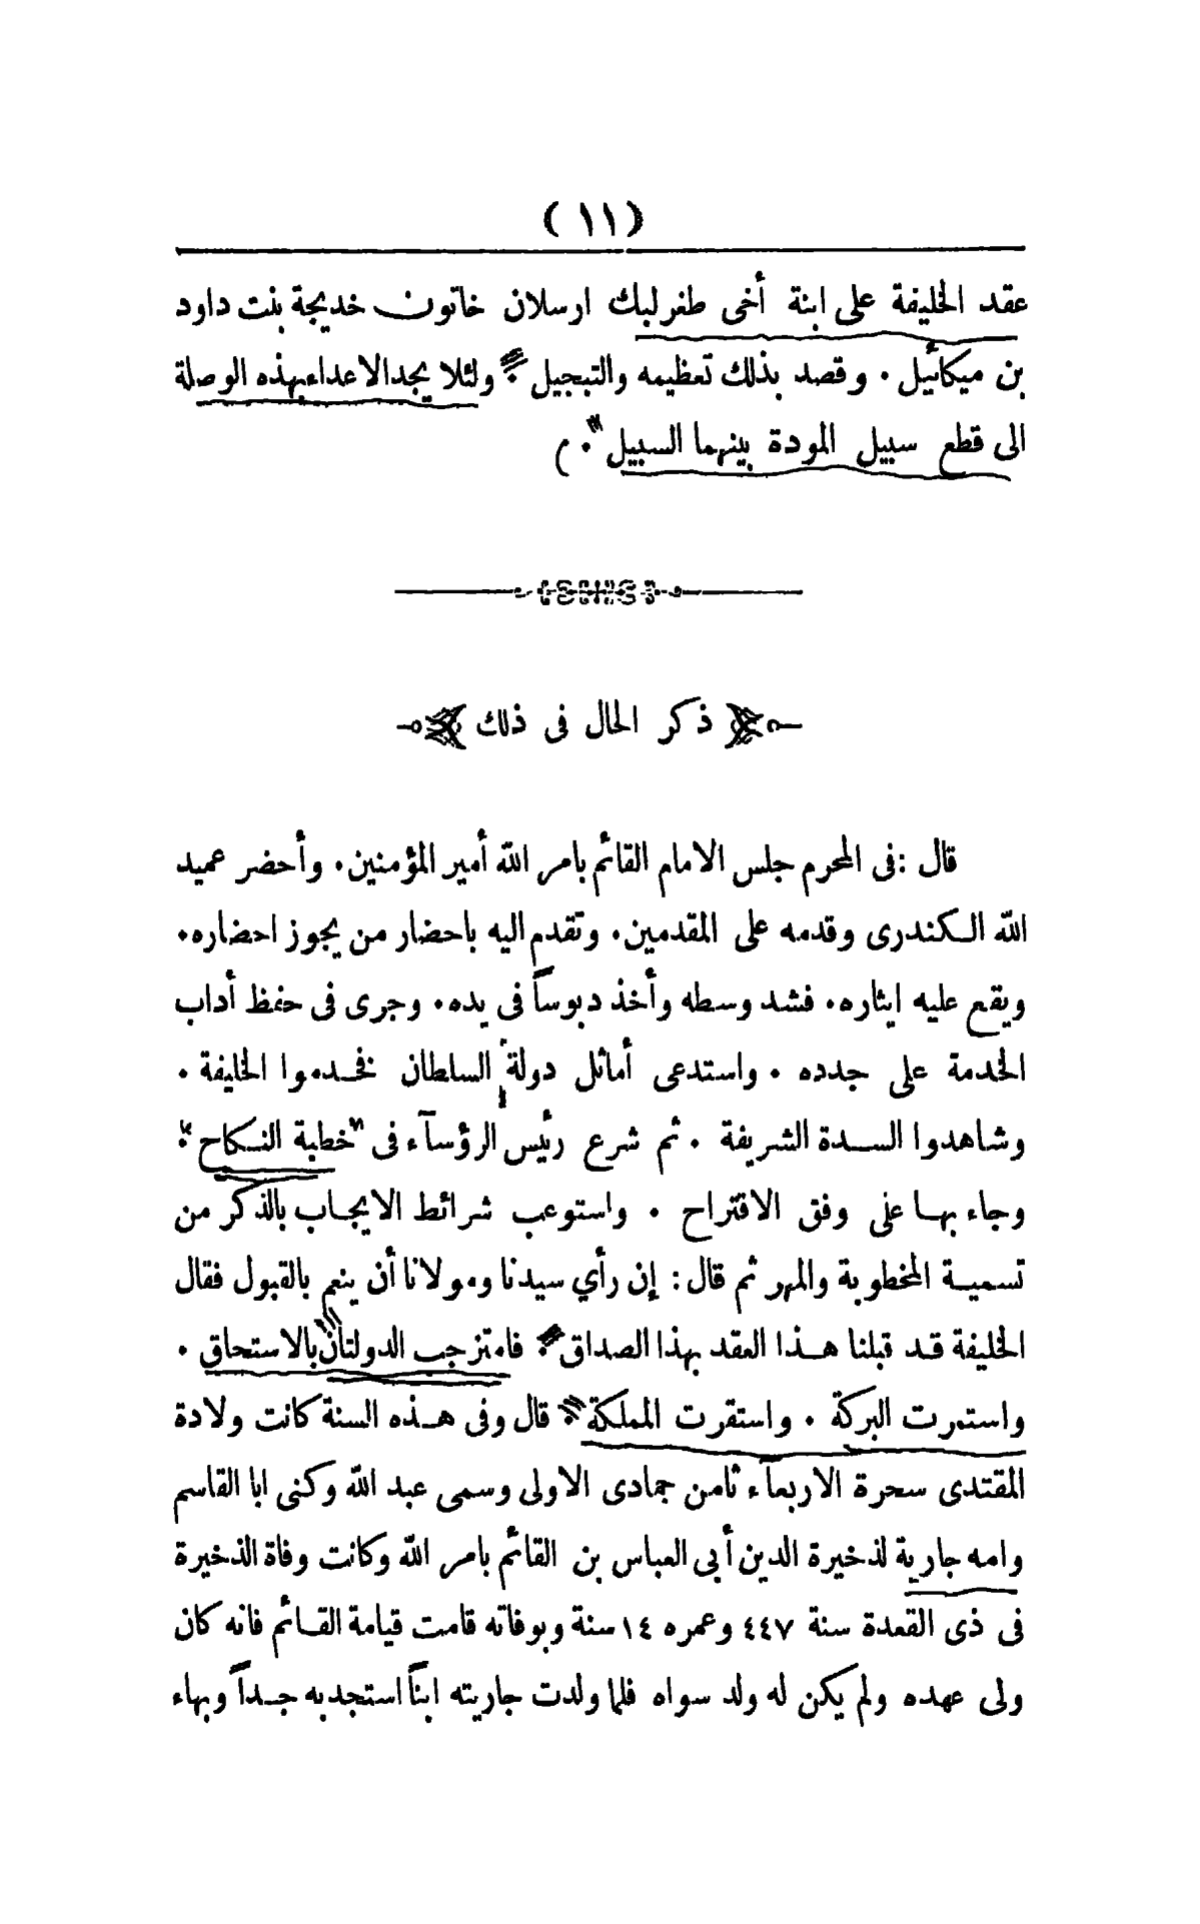 ( ١١ )
عقد الخليفة على ابنة أخى طغرلبك ارسلان خاتون خديجة بنت داود
بن ميكائيل . وقصد بذلك تعظيمه والتبجيل . ولئلا يجد الاعداء بهذه الوصلة
الى قطع سبيل المودة بينهما السبيل .
ذكر الحال فى ذلك
قال : فى المحرم جلس الامام القائم بامر الله أمير المؤمنين . وأحضر عميد
الله الكندرى وقدمه على المقدمين . وتقدم اليه باحضار من يجوز احضاره .
ويقع عليه ايثاره . فشد وسطه وأخذ دبوساً فى يده . وجرى فى حفظ أداب
الخدمة على جدده . واستدعى أماثل دولة السلطان فخدموا الخليفة .
وشاهدوا السدة الشريفة . ثم شرع رئيس الرؤسآء فى خطبة النكاح .
وجاء بها على وفق الاقتراح . واستوعب شرائط الايجاب بالذكر من
تسمية المخطوبة والمهر ثم قال : إن رأي سيدنا ومولانا أن ينعم بالقبول فقال
الخليفة قد قبلنا هذا العقد بهذا الصداق . فامتزجب الدولتان بالاستحاق .
واستمرت البركة . واستقرت المملكة . قال وفى هذه السنة كانت ولادة
المقتدى سحرة الاربعآء ثامن جمادى الاولى وسمى عبد الله وكنى ابا القاسم
وامه جارية لذخيرة الدين أبى العباس بن القائم بامر الله وكانت وفاة الذخيرة
فى ذى القعدة سنة ٤٤٧ وعمره ١٤ سنة وبوفاته قامت قيامة القائم فانه كان
ولى عهده ولم يكن له ولد سواه فلما ولدت جاريته ابناً استجد به جداً وبهاء